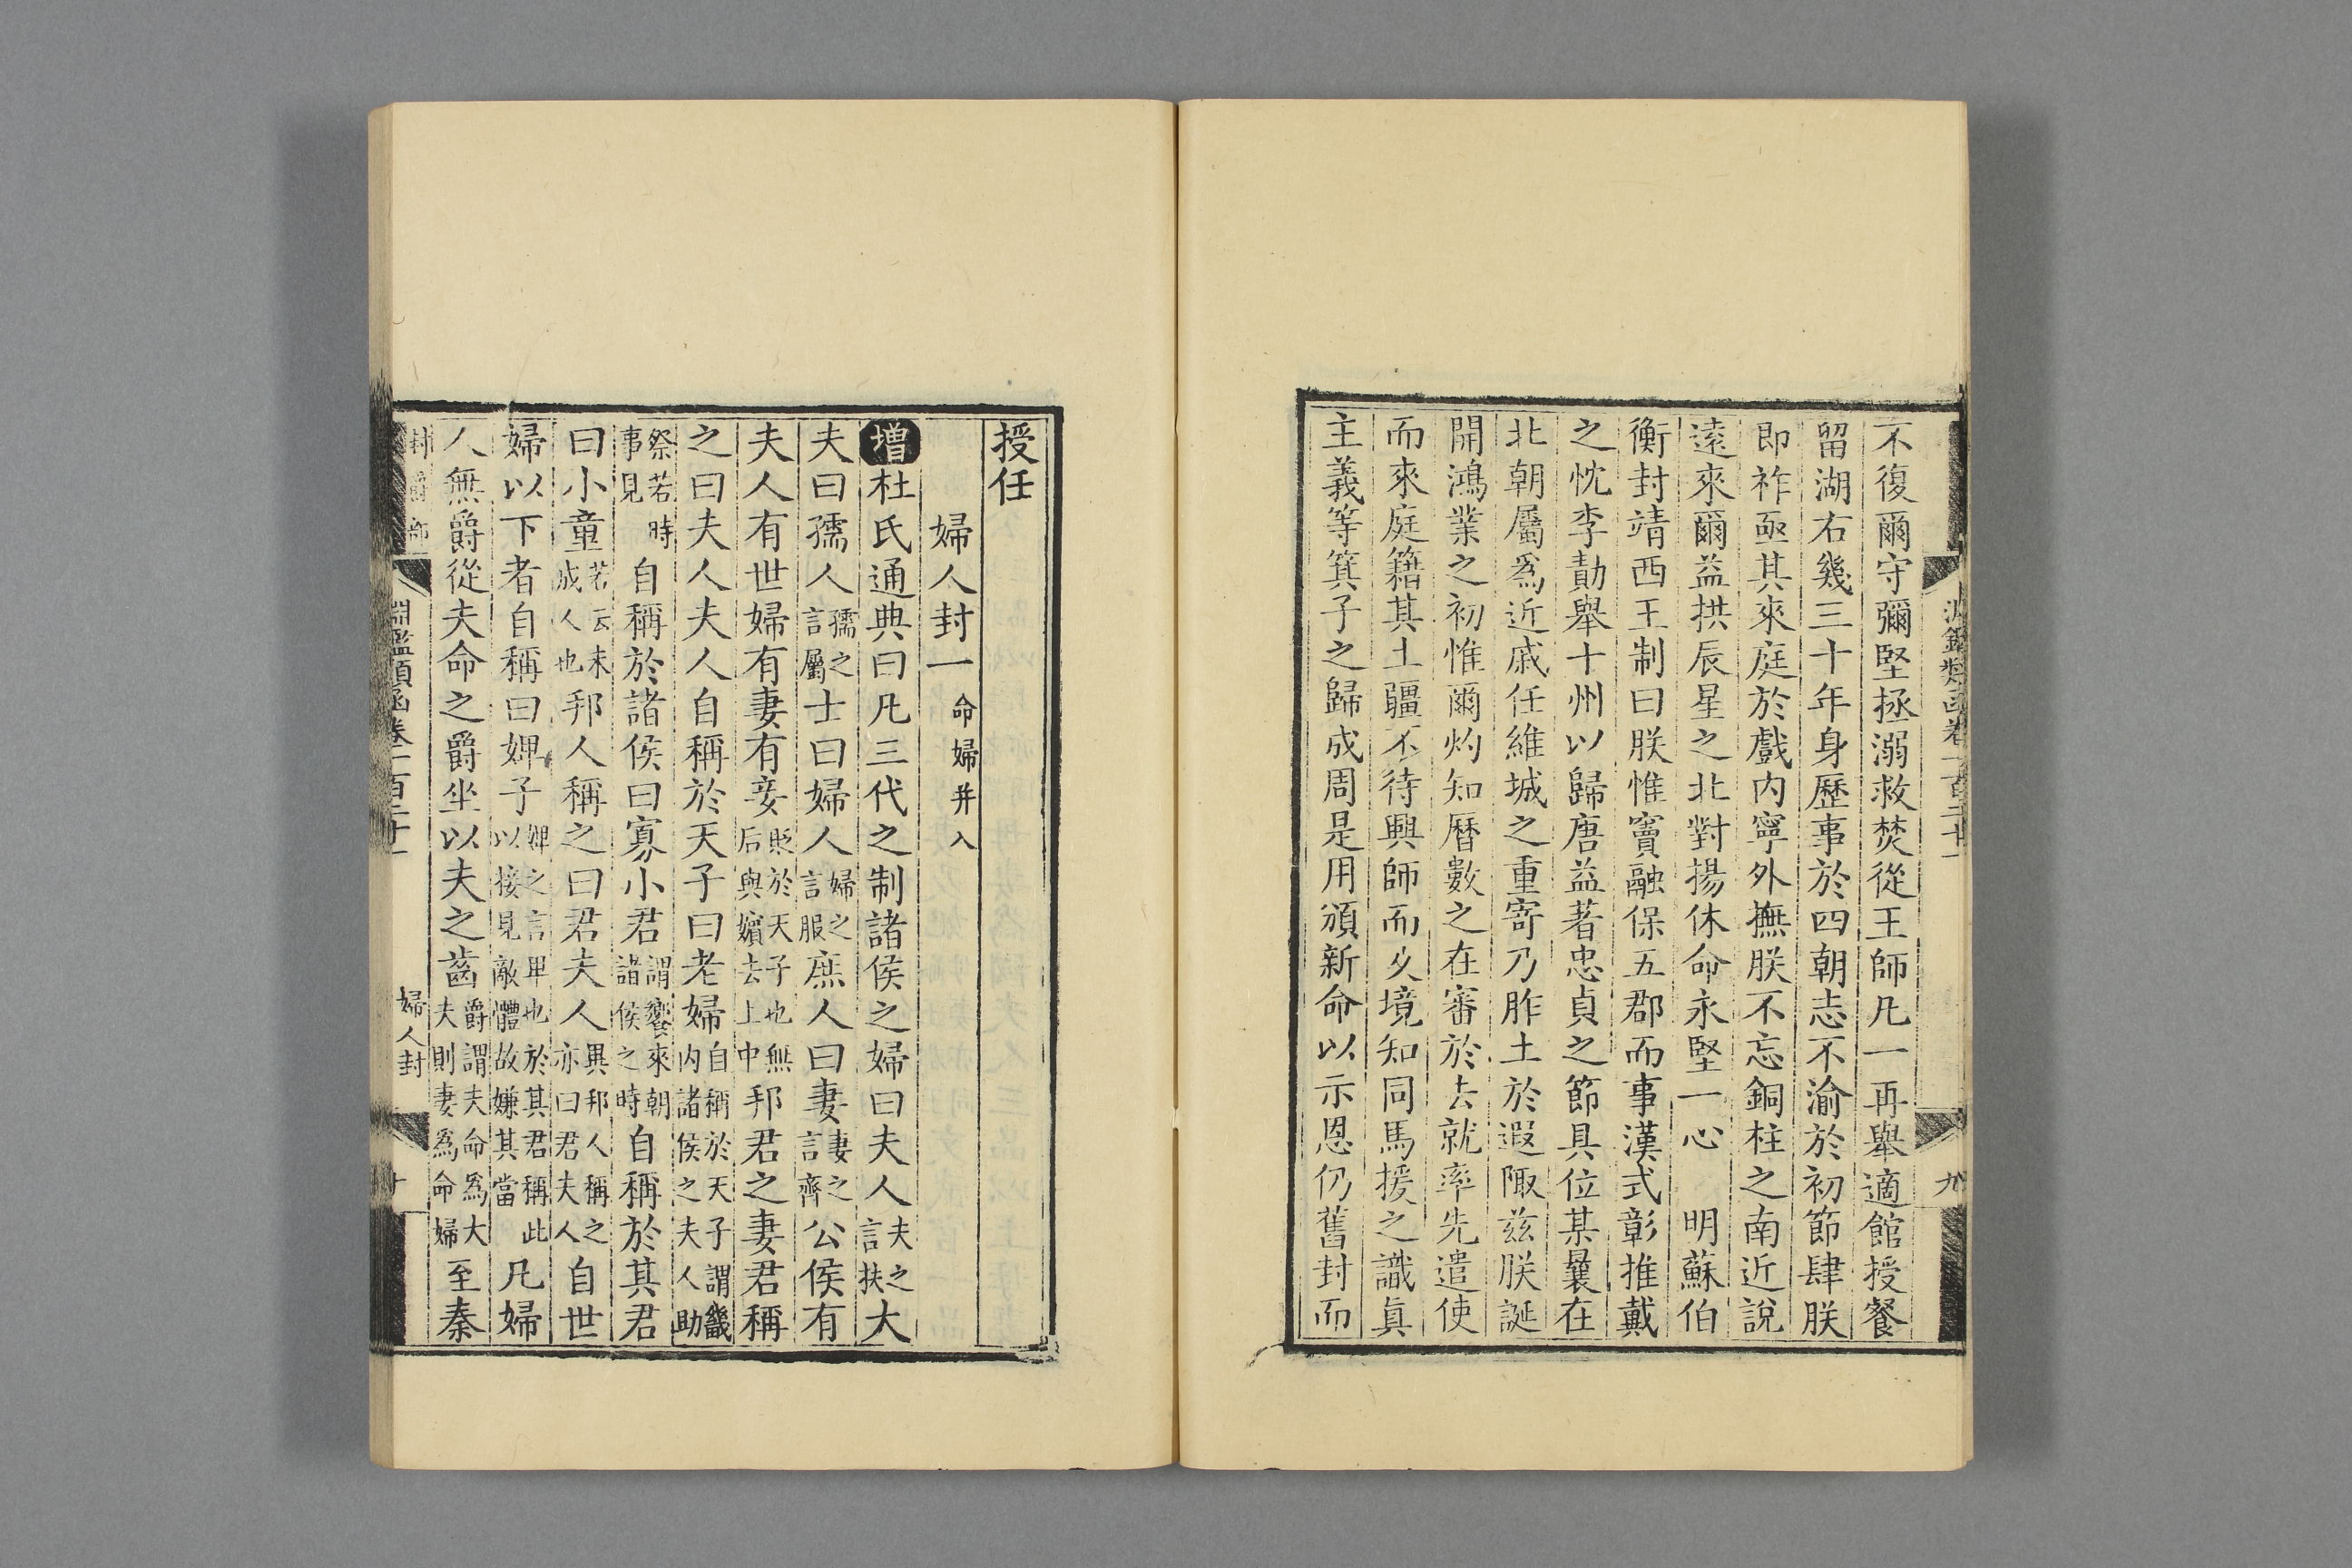 不復爾守彌堅拯溺救焚從王師凡一再舉適館授餐
留湖右幾三十年身歷事於四朝志不渝於初節肆朕
即祚亟其來庭於戲内寧外撫朕不忘銅柱之南近說
遠來爾益拱辰星之北對揚休命永堅一心　明蘇伯
衡封靖西王制曰朕惟竇融保五郡而事漢式彰推戴
之忱李勣舉十州以歸唐益著忠貞之節具位某曩在
北朝屬爲近戚任維城之重寄乃胙土於遐陬兹朕誕
開鴻業之初惟爾灼知曆數之在審於去就率先遣使
而來庭籍其土疆不待興師而乆境知同馬援之識眞
主義等箕子之歸成周是用頒新命以示恩仍舊封而
九
授任
婦人封一命婦并入
增杜氏通典曰凡三代之制諸侯之婦曰夫人夫之言扶大
夫曰孺人孺之言屬士曰婦人婦之言服庶人曰妻妻之言齊公侯有
夫人有世婦有妻有妾貶於天子也無后與嬪去上中邦君之妻君稱
之曰夫人夫人自稱於天子曰老婦自稱於天子謂畿内諸侯之夫人助
祭若時事見自稱於諸侯曰寡小君謂饗來朝諸侯之時自稱於其君
曰小童若云未成人也邦人稱之曰君夫人異邦人稱之亦曰君夫人自世
婦以下者自稱曰婢子婢之言卑也於其君稱此以接見敵體故嫌其當凡婦
人無爵從夫命之爵坐以夫之齒爵謂夫命爲大夫則妻爲命婦至秦
封爵部
淵鑑類函卷一百二十一
婦人封
十